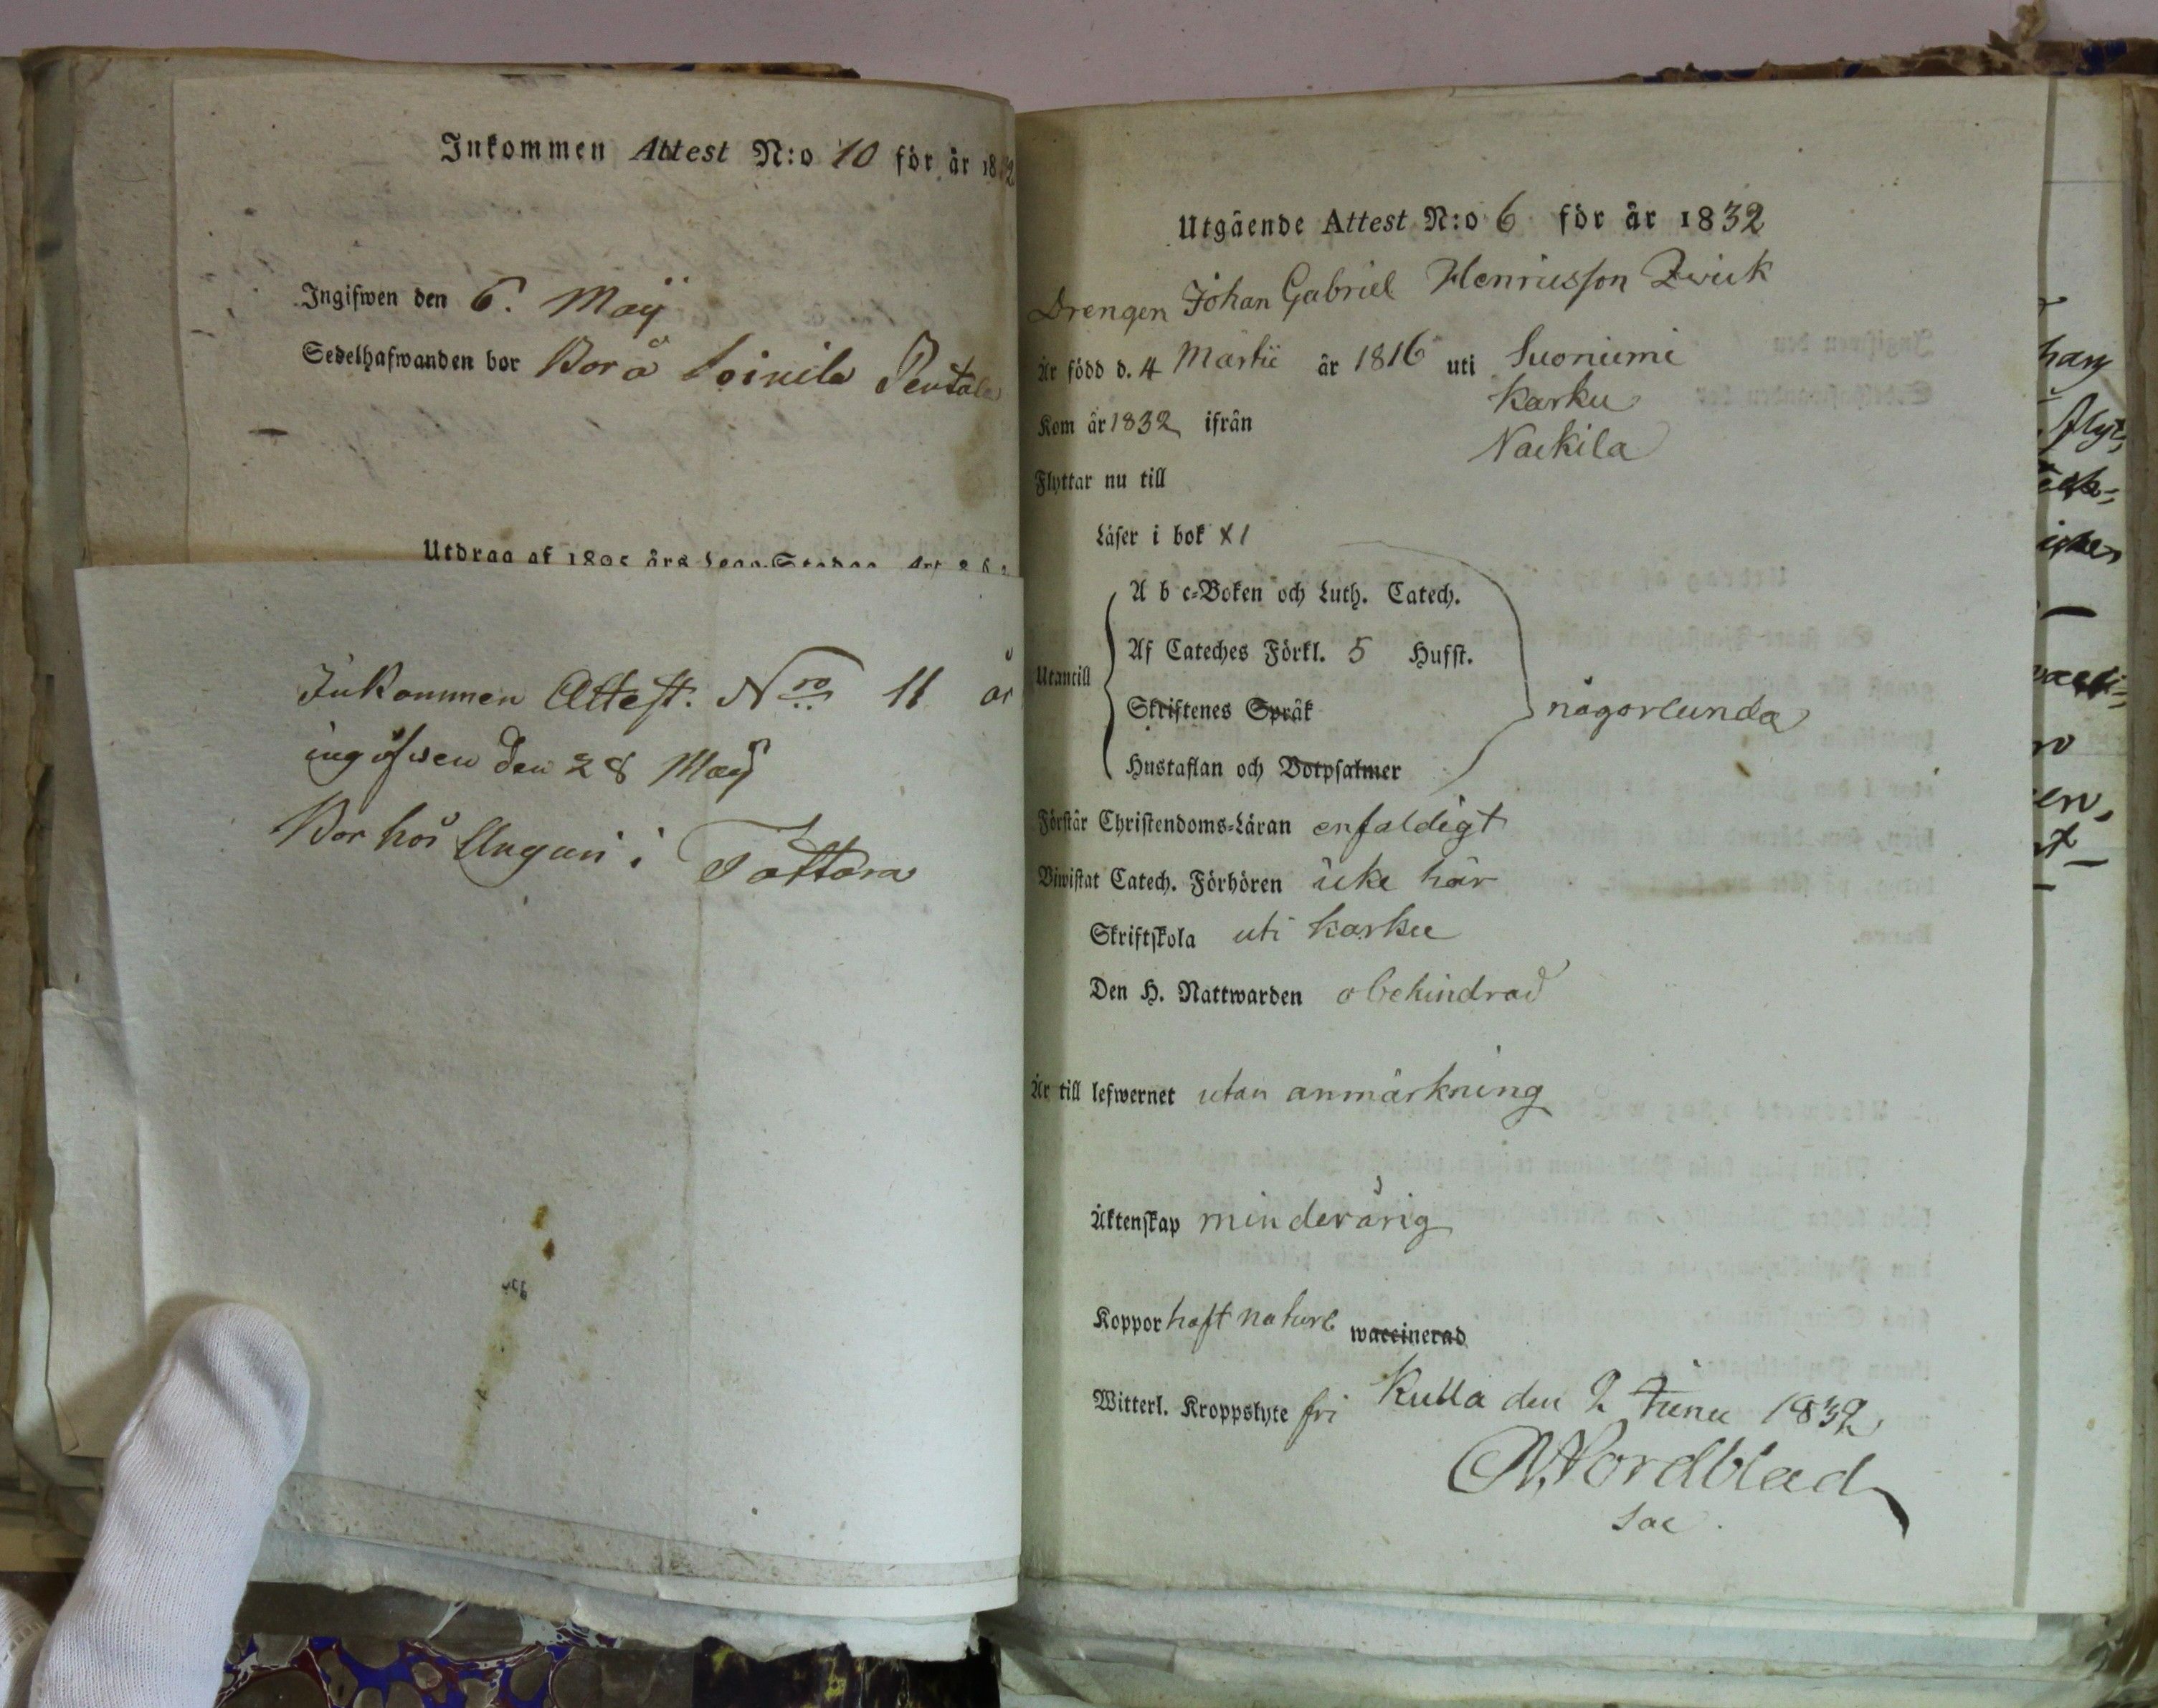 Inkommen Attest N:o 10 för år 1832
Ingifwen den 6. Maij
Sedelhafwanden bor Bor å Soinila Pentala
Utdrag af 1805 års Lego-Stadga Art
Inkommen Attest. Nro 11 år
ingifwen den 28 Maij
Bor hos Unguri i Tattara
Utgående Attest N:o 6 för år 1832
Drengen Johan Gabriel Henricsson Zwick
Är född d. 4 Martii år 1816 uti Suoniemi
Kom år 1832 ifrån Karku
Flyttar nu till Nackila
Läser i bok x1
A b c-Boken och Luth. Catech.
Af Cateches Förkl. 5 Hufst.
Utantill
Skriftenes Språk
någorlunda
Hustaflan och Botpsalmer
Förstår Christendoms-Läran enfaldigt
Biwistat Catech. Förhören icke här
Skriftskola uti Karku
Den H. Nattwarden obehindrad
Är till lefwernet utan anmärkning
Äktenskap minderårig
Koppor haft naturl waccinerad
Witterl. Kroppslyte fri Kulla den 2 Junii 1832
Nordblad
Sac.